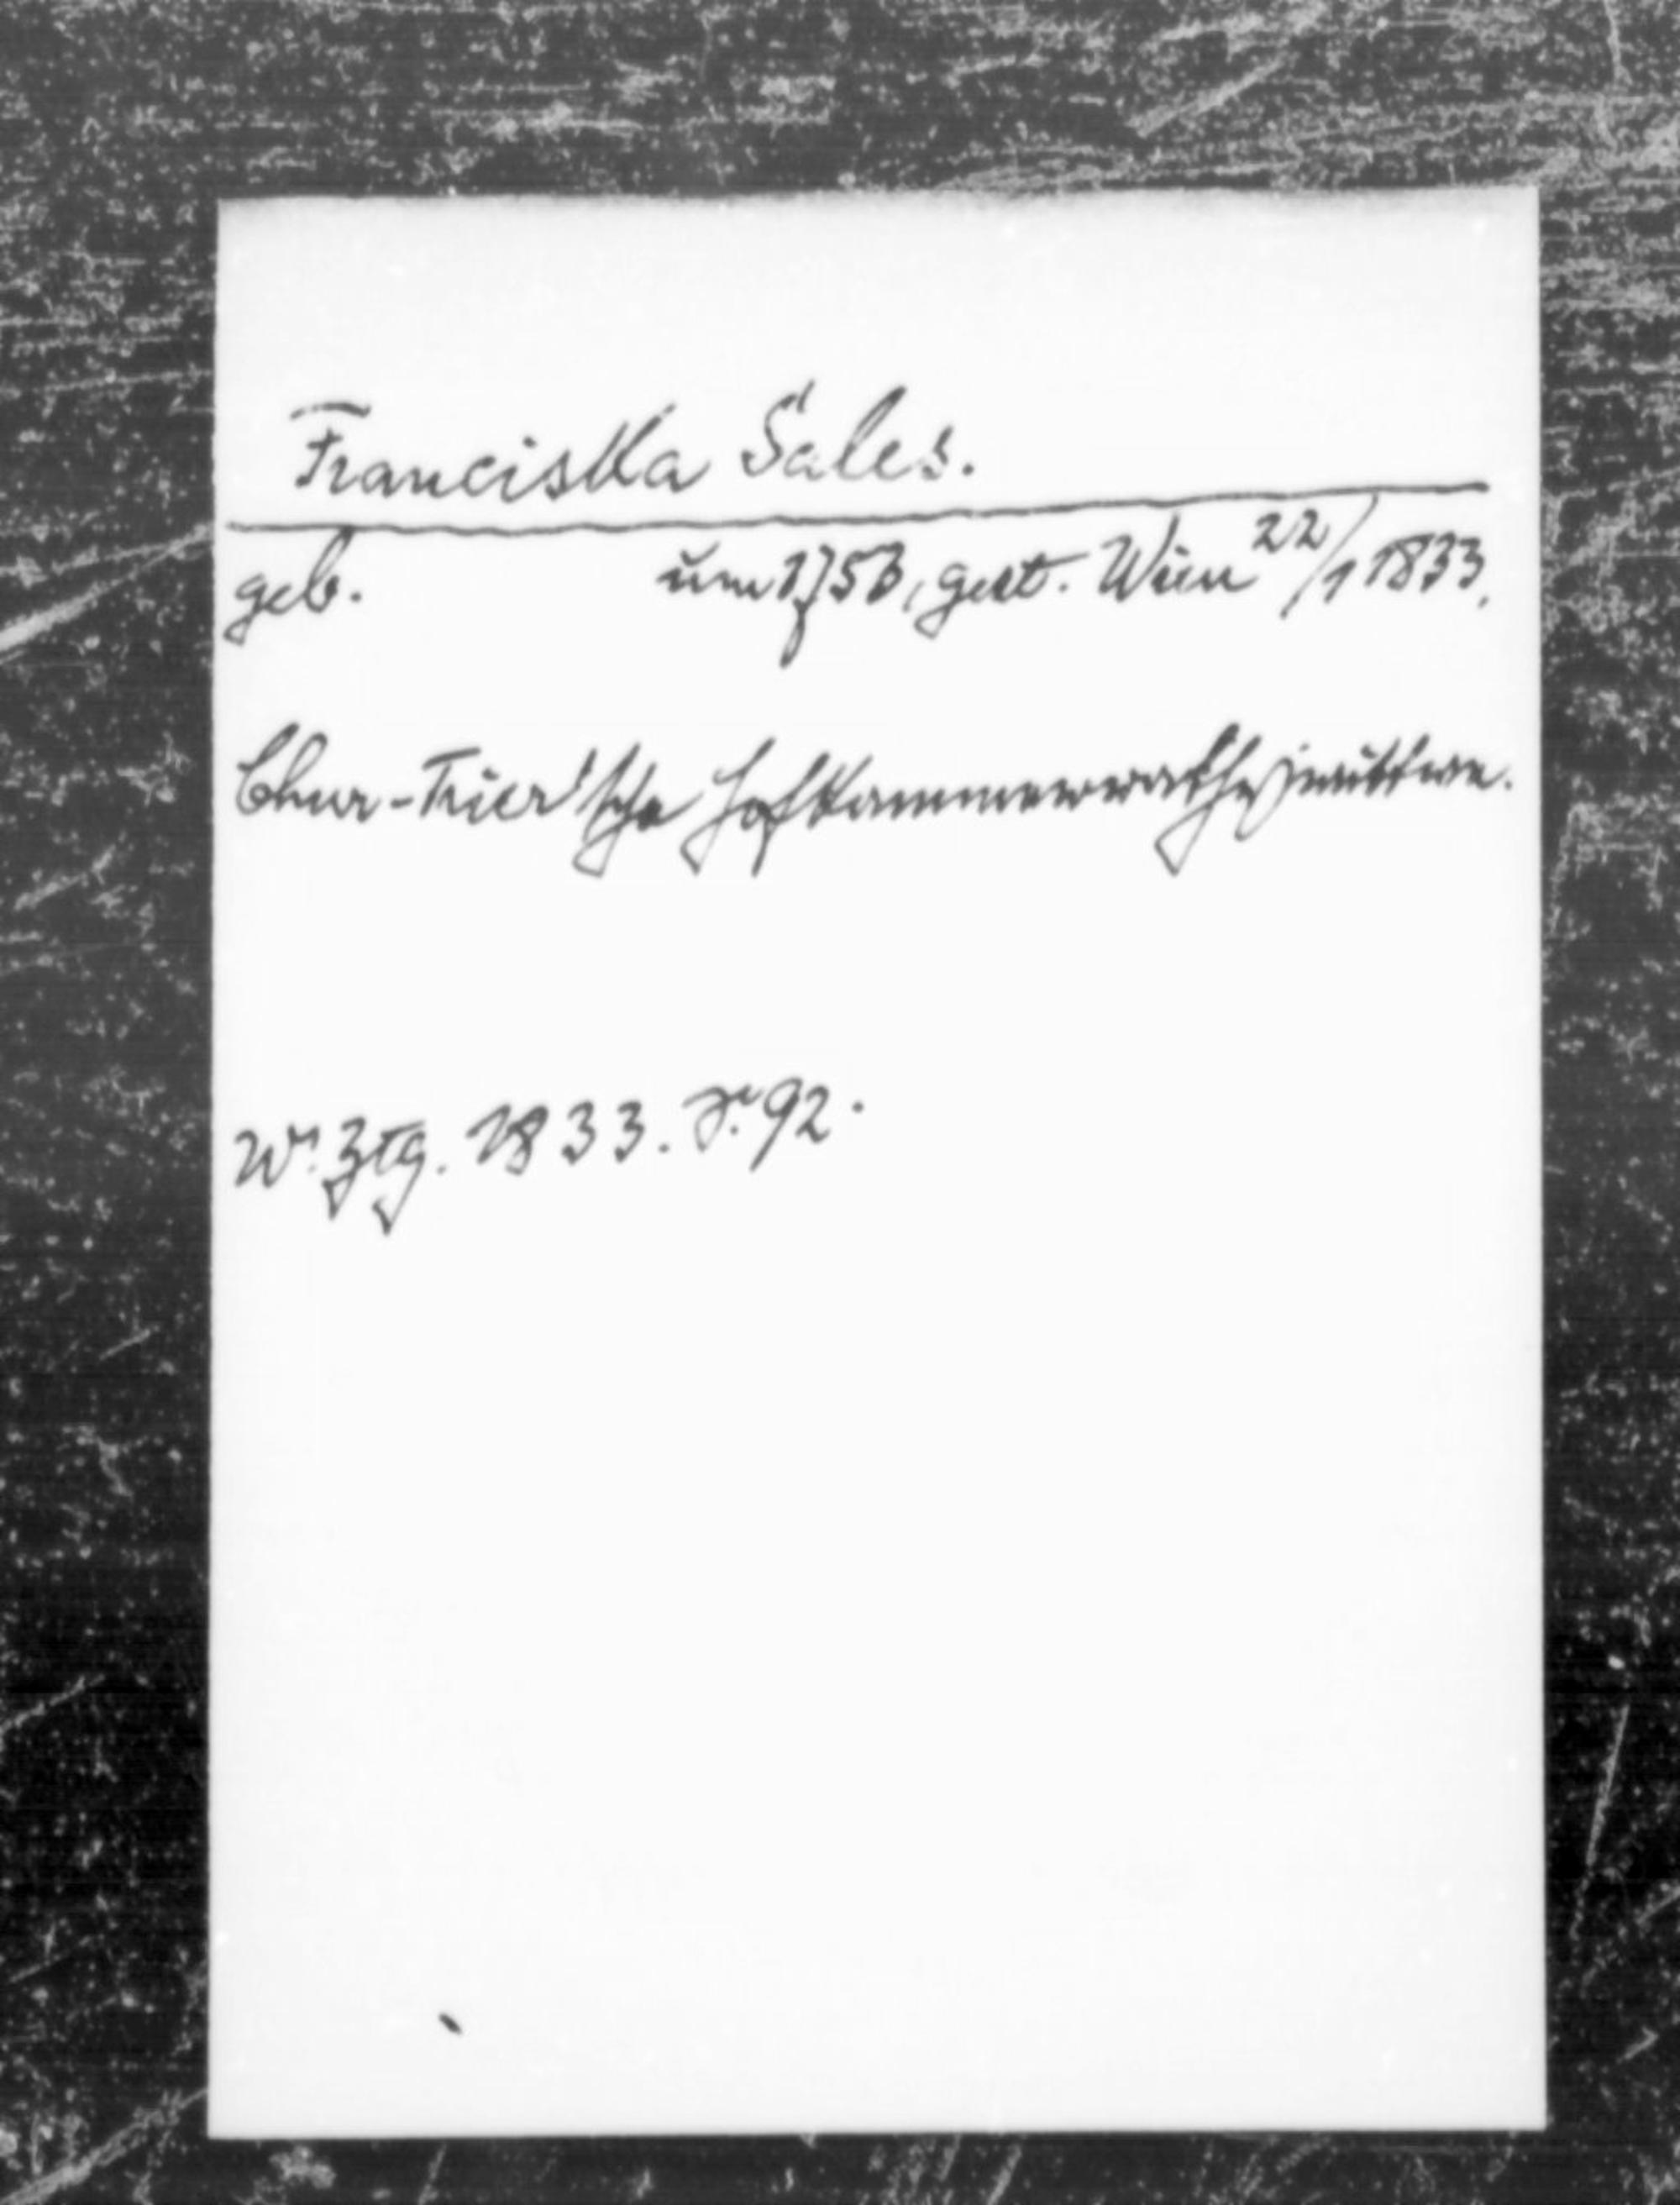 Franciska Sales.
geb. um 1753, gest. Wien 22/1 1833.
Chur-Trier'sche Hofkammerrathswittwe.
Wr. Ztg. 1833. S. 92.